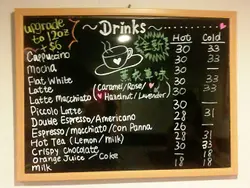 upgrade
to 12oz
+ $6
~Drinks~
Hot Cold
Cappuccino 30 33
Mocha 30 33
Flat White 30 33
Latte (Caramel/Rose/ 30 33
Latte Macchiato Hazelnut/Lavender) 30
Piccolo Latte 30
Double Espresso/Americano 28 31
Espresso/macchiato/Con Panna 26
Hot Tea (Lemon/milk) 28 31
Crispy Chocolate 30 33
Orange Juice/Coke 18 18
Milk 18 18